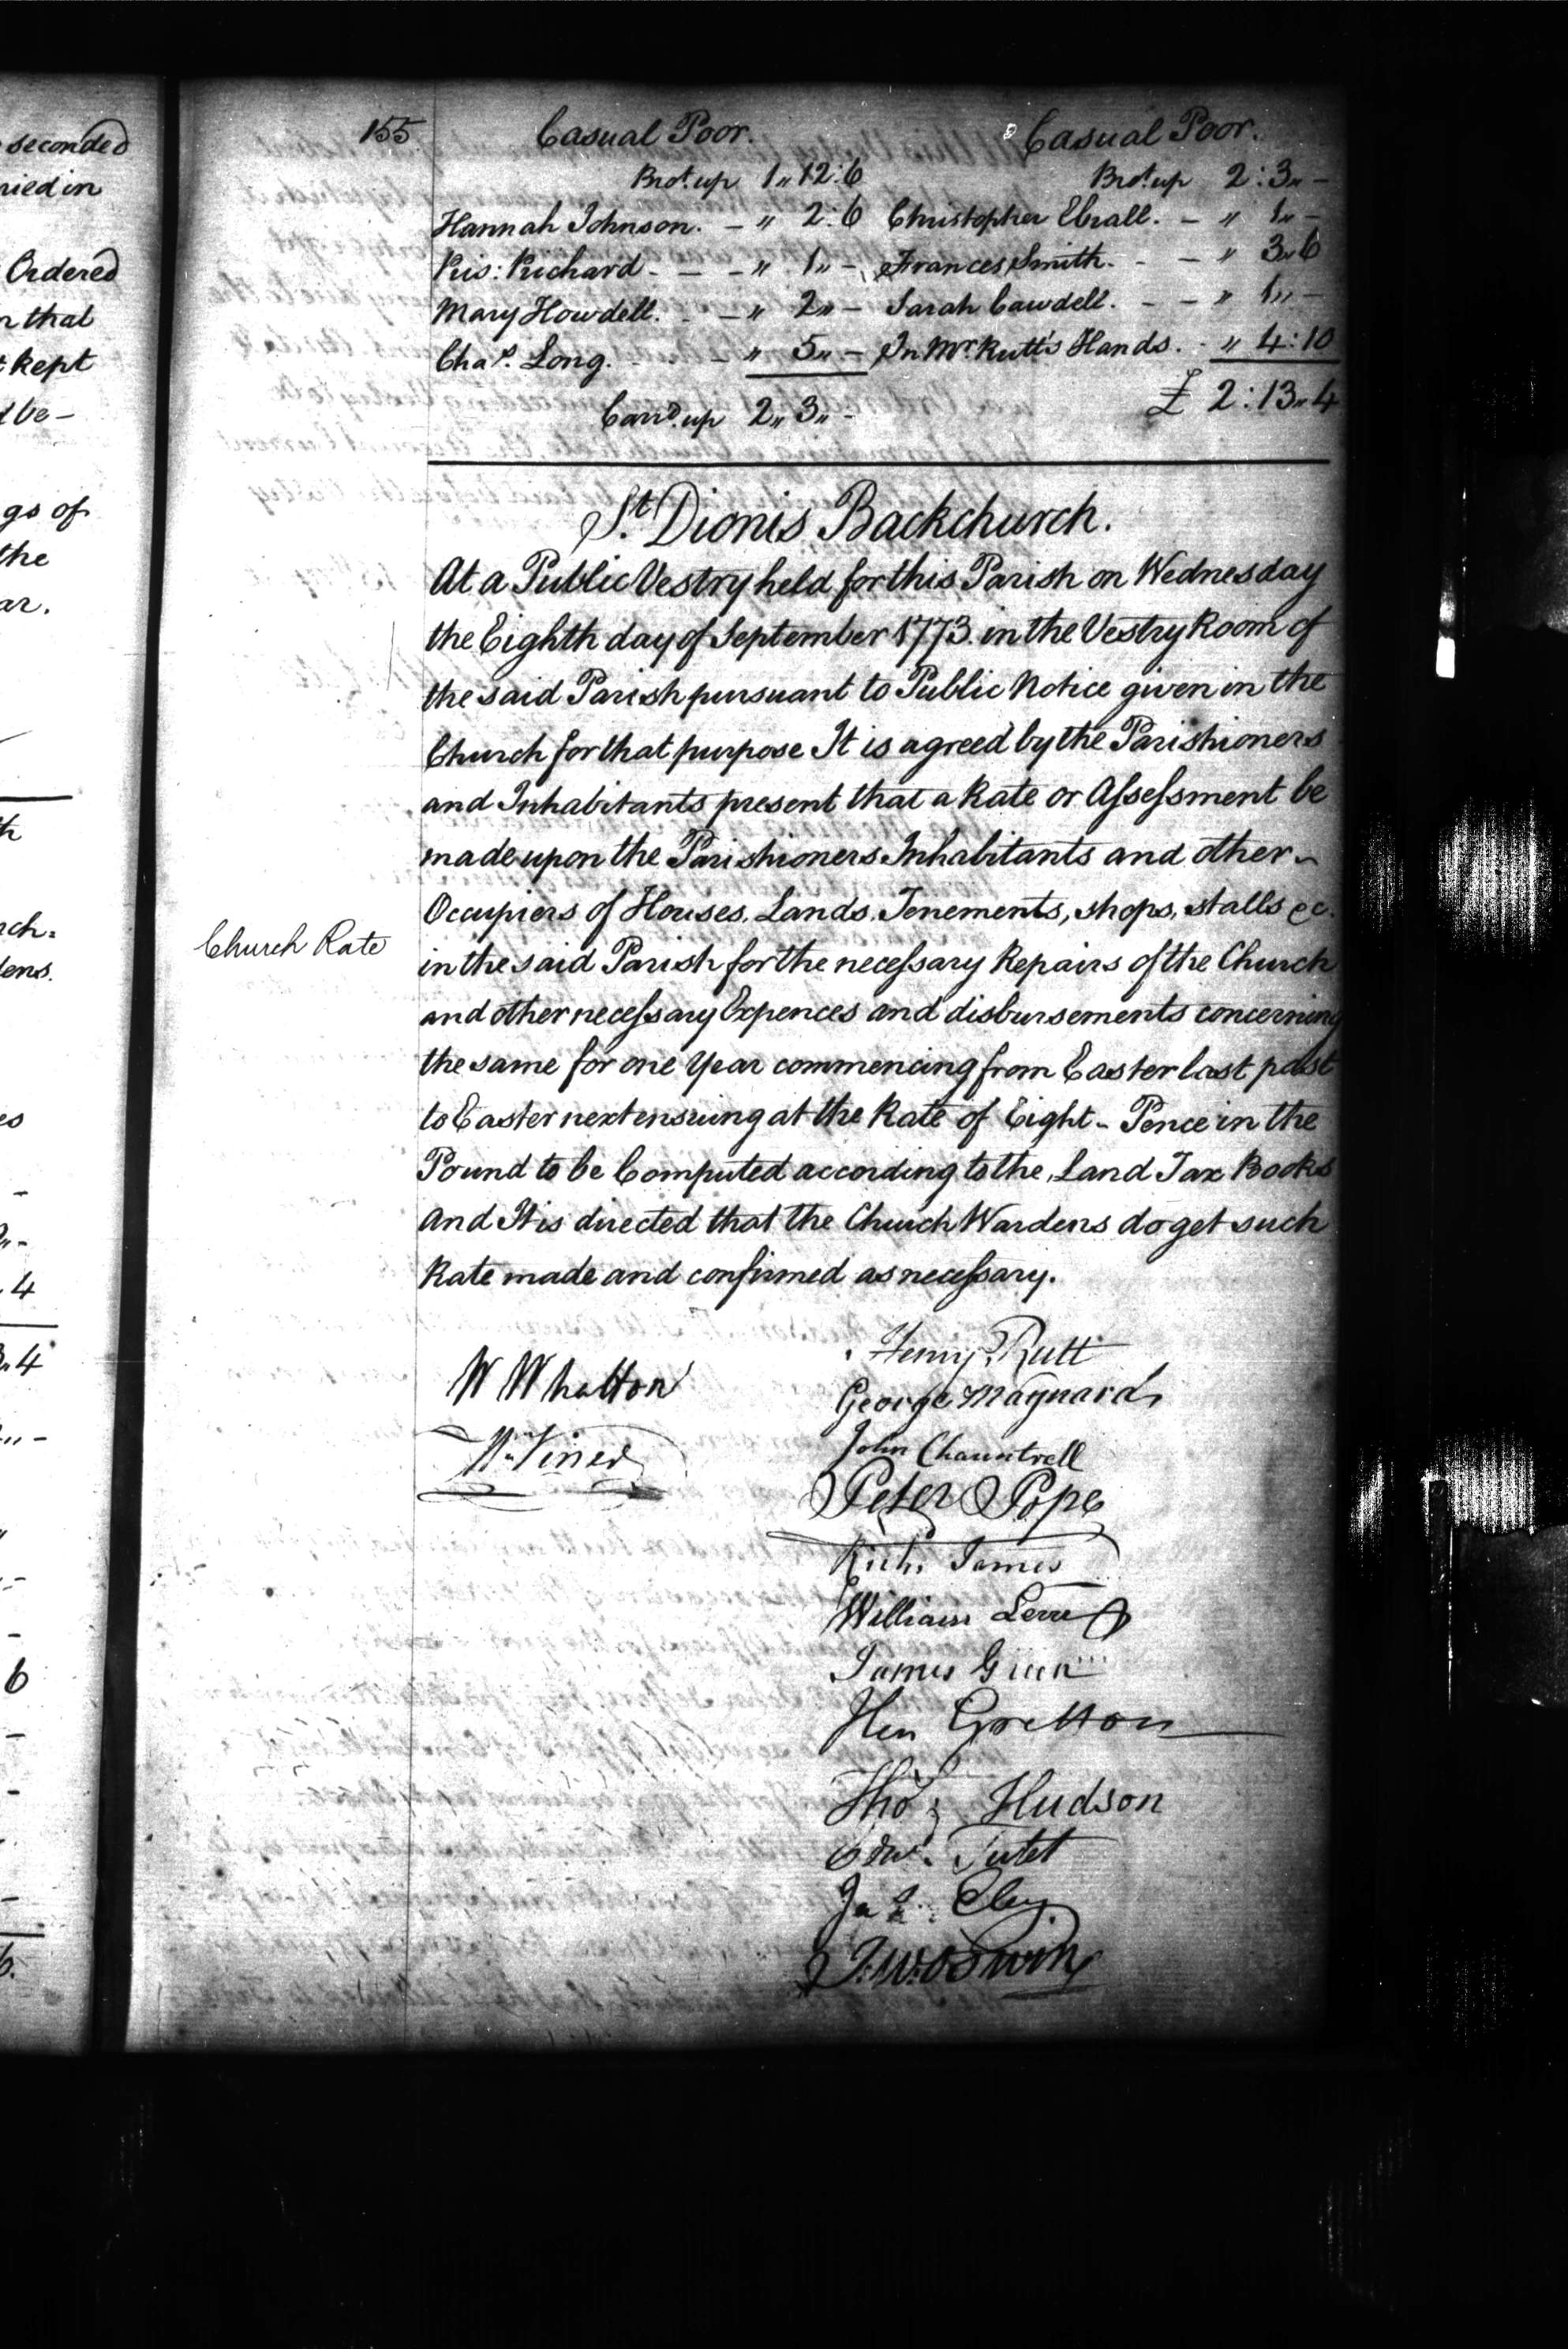 seconded
ried in
Ordered
n that
t kept
d be -
gs of
the
ar.
th
rch=
dens.
155
Casual Poor.
Bro.t up 1,, 12 : 6
Hannah Johnson. - ,, 2 : 6
Pris: Prichard - - - ,, 1 ,, -
Mary Howdell. - - ,, 2 ,, -
Cha.s Long. - - ,, 5 ,, -
Carr.d up 2 ,, 3 ,, -
Casual Poor.
Bro.t up 2 : 3 ,, -
Christopher Ebrall. - ,, 1 ,, -
Frances Smith. - - ,, 3 ,, 6
Sarah Cawdell. - - ,, 1 ,, -
In Mr. Rutt's Hands. - ,, 4 : 10
£ 2 : 13 ,, 4
St. Dionis Backchurch.
At a Public Vestry held for this Parish on Wednesday
the Eighth day of September 1773. in the Vestry Room of
the said Parish pursuant to Public Notice given in the
Church for that purpose It is agreed by the Parishioners
and Inhabitants present that a Rate or Assessment be
made upon the Parishioners Inhabitants and other ~
Occupiers of Houses, Lands, Tenements, shops, stalls &c.
Church Rate
in the said Parish for the necessary Repairs of the Church
and other necessary Expences and disbursements concerning
the same for one Year commencing from Easter last past
to Easter next ensuing at the Rate of Eight - Pence in the
Pound to be Computed according to the Land Tax Books
And It is directed that the Church Wardens do get such
Rate made and confirmed as necessary.
W Whatton
Wm Viner
Henry Rutt
George Maynard
John Chauntrell
Peter Pope
Richd. James
William
James Green
Hen Gretton
Thos. Hudson
Edwd. Tutet
Jas. Eley